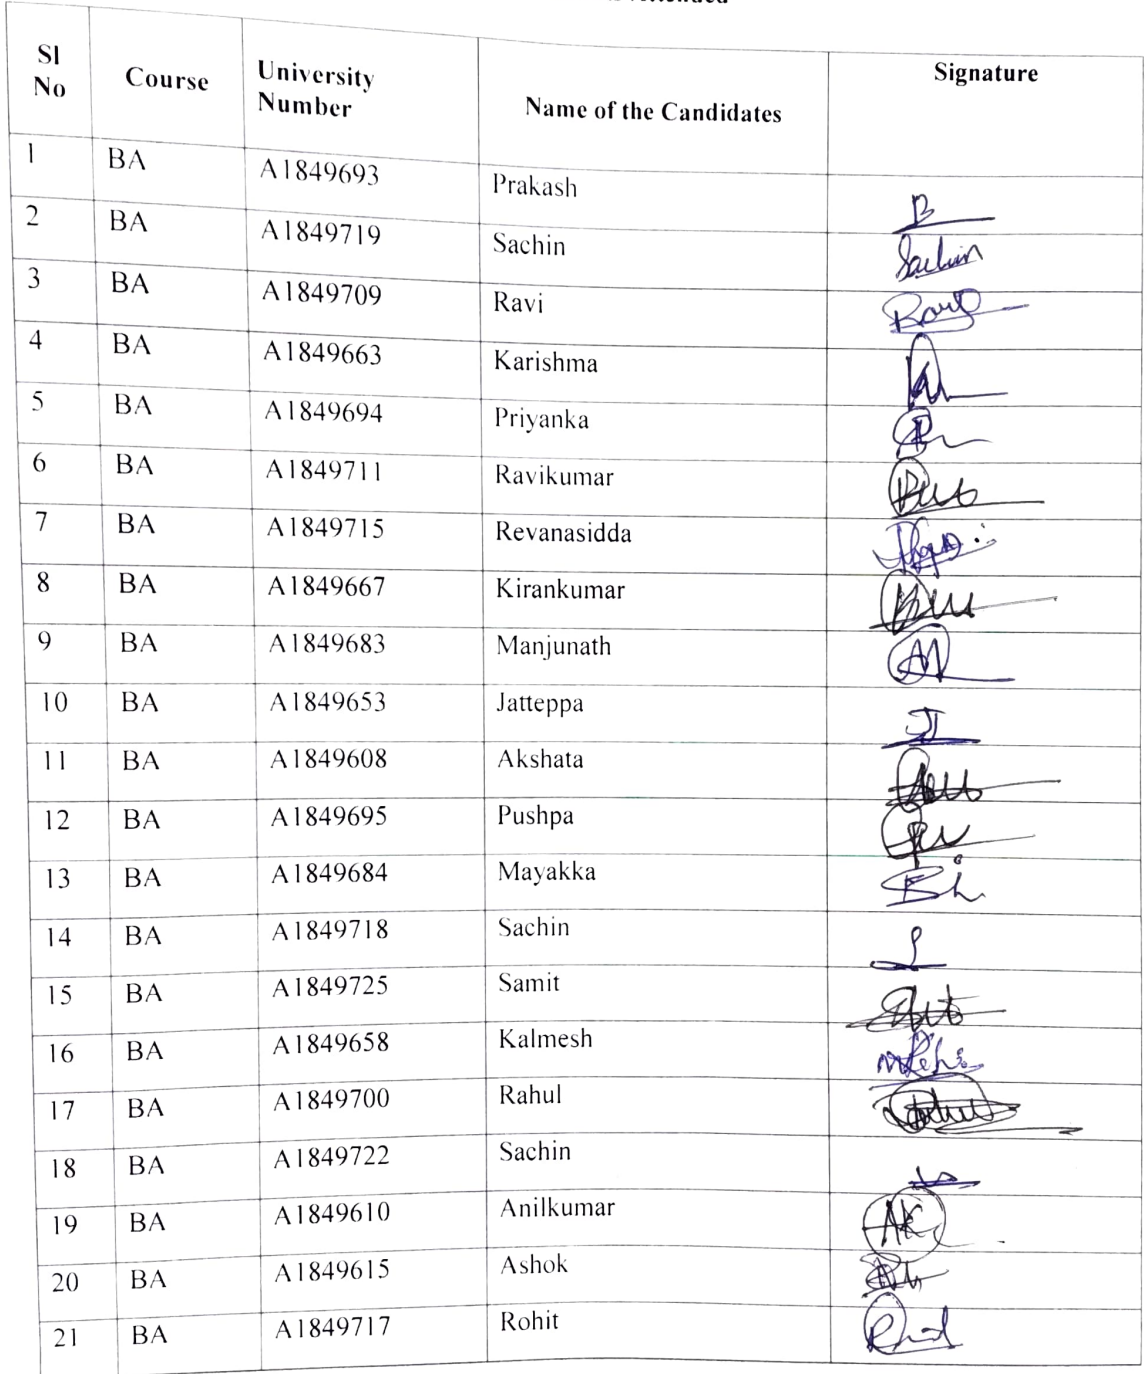 Sl No Course University Number Name of the Candidates Signature
1 BA A1849693 Prakash
2 BA A1849719 Sachin Sachin
3 BA A1849709 Ravi
4 BA A1849663 Karishma
5 BA A1849694 Priyanka
6 BA A1849711 Ravikumar
7 BA A1849715 Revanasidda
8 BA A1849667 Kirankumar
9 BA A1849683 Manjunath
10 BA A1849653 Jatteppa
11 BA A1849608 Akshata
12 BA A1849695 Pushpa
13 BA A1849684 Mayakka
14 BA A1849718 Sachin
15 BA A1849725 Samit
16 BA A1849658 Kalmesh
17 BA A1849700 Rahul
18 BA A1849722 Sachin
19 BA A1849610 Anilkumar AK
20 BA A1849615 Ashok
21 BA A1849717 Rohit